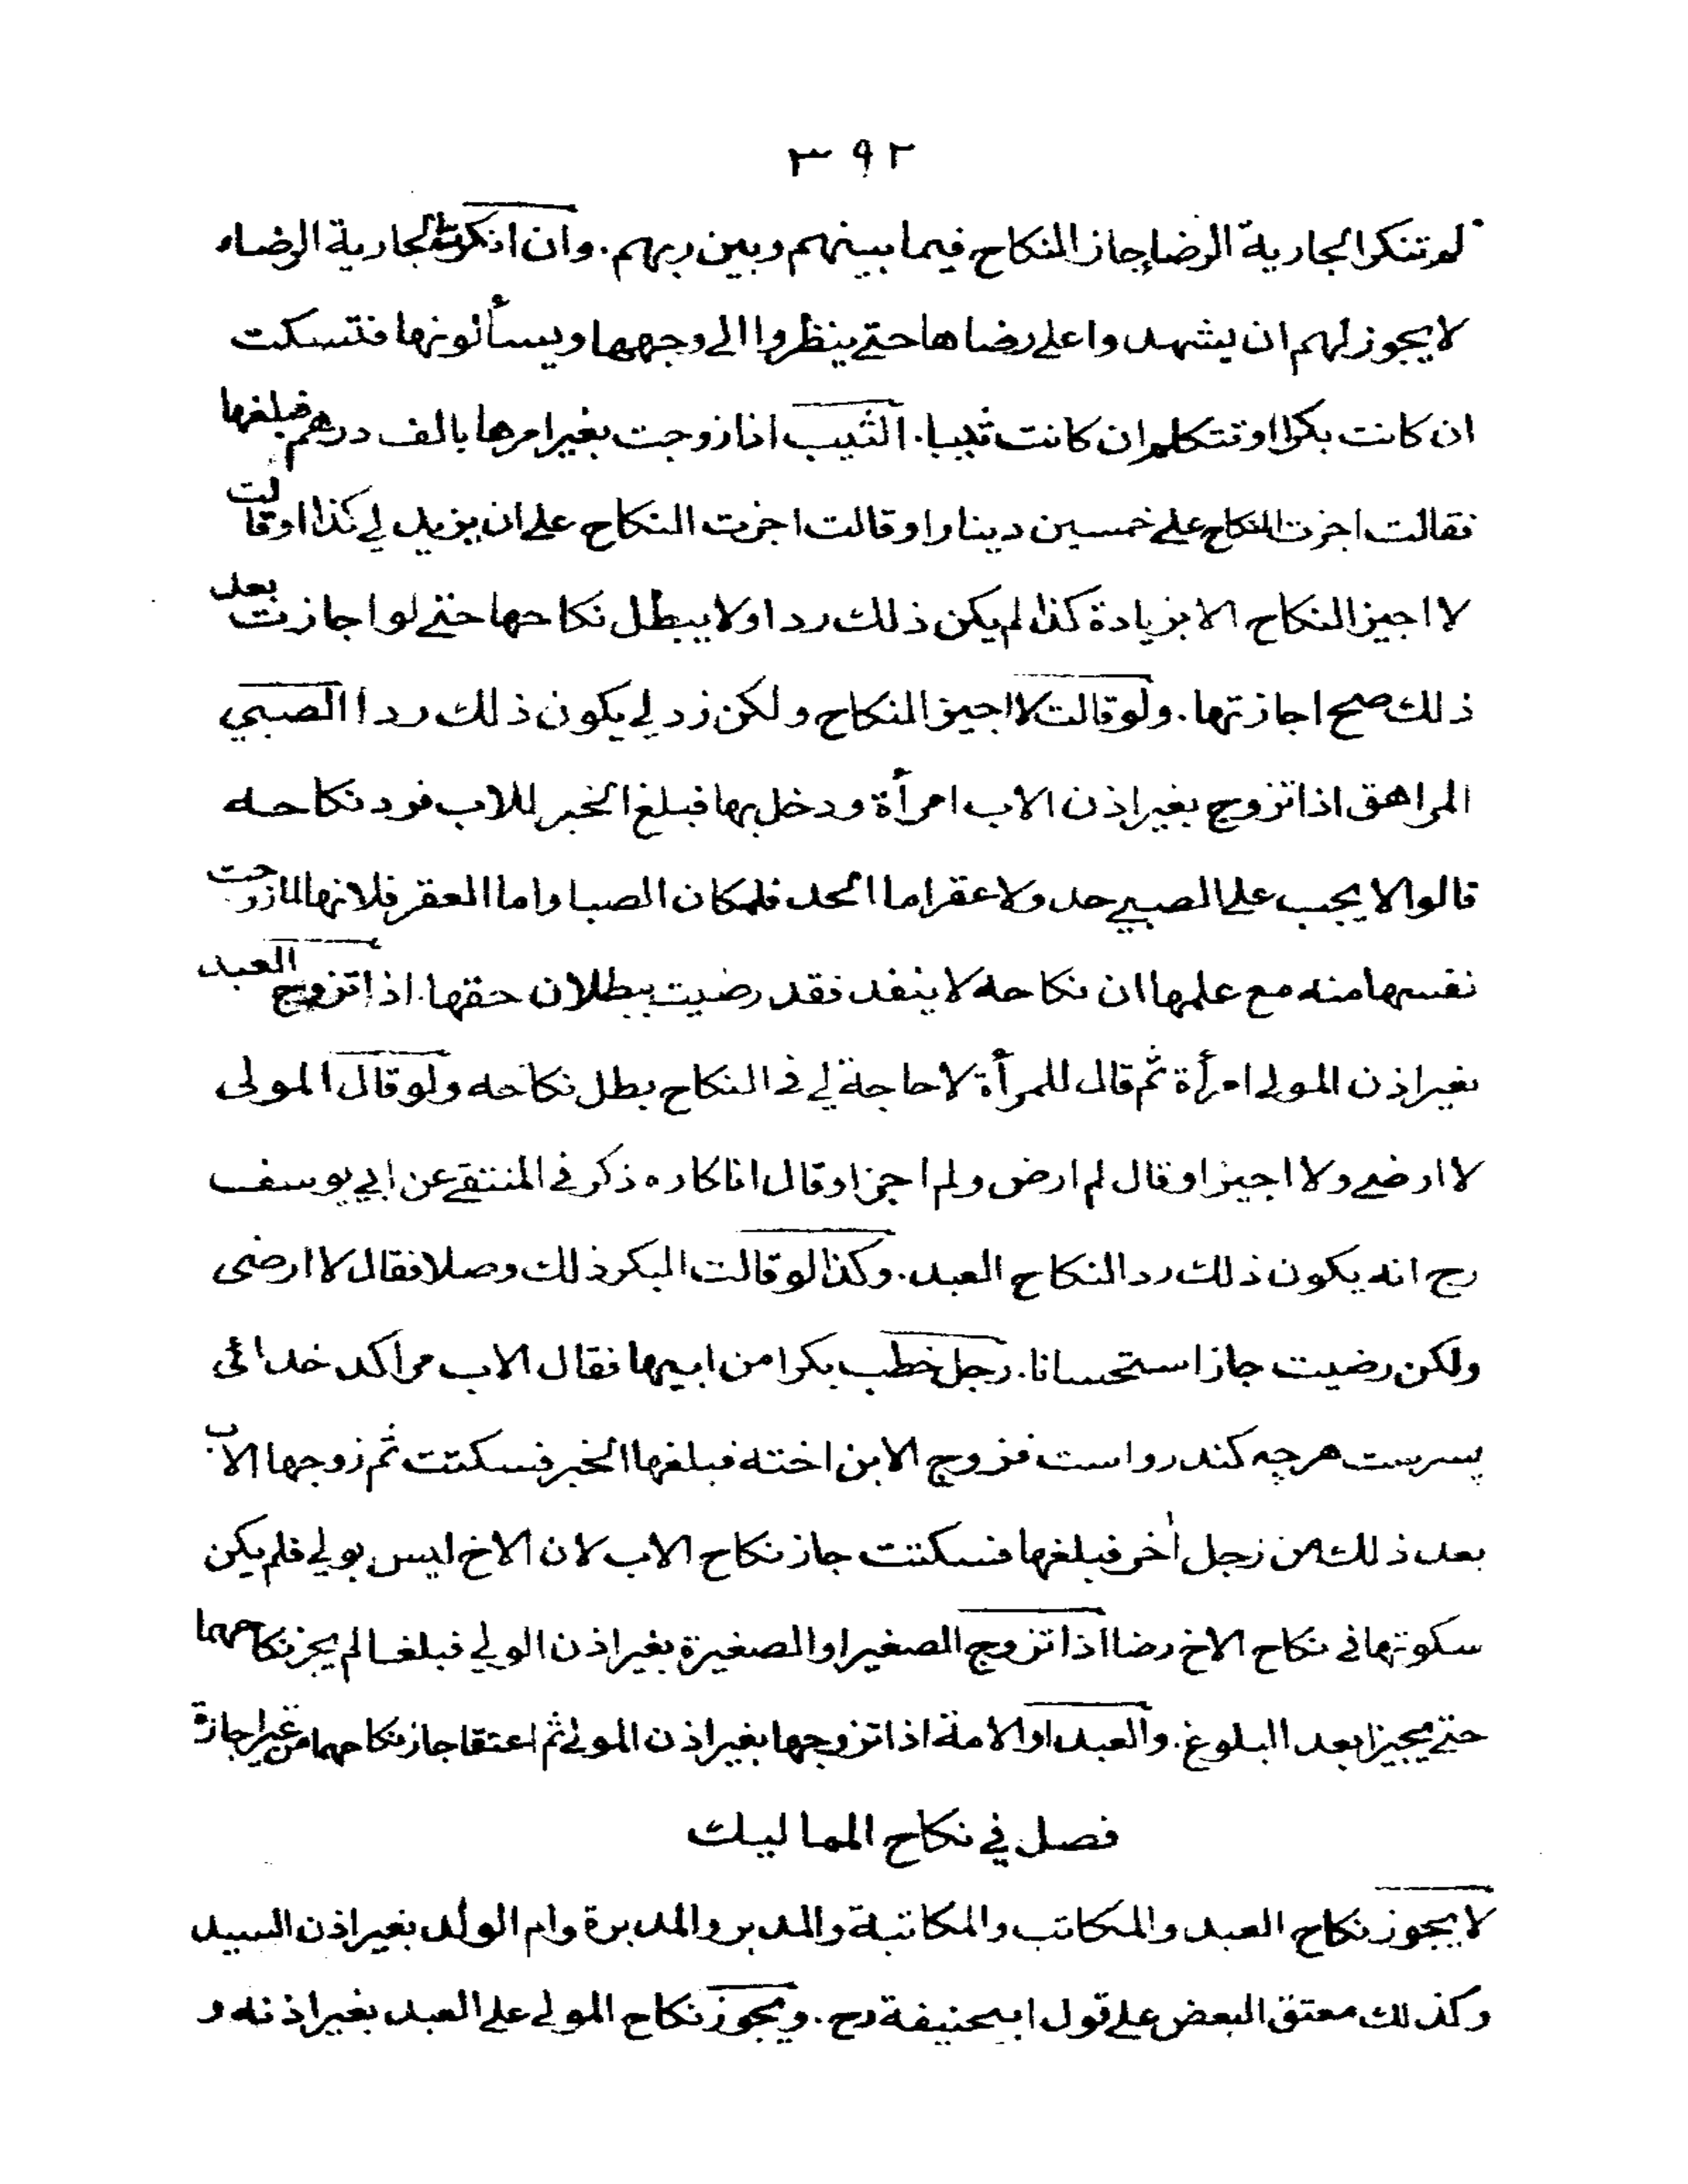 ٣٩٢
لم تنكر الجارية الرضاء جاز النكاح فيما بينهم وبين ربهم. وان انكرت الجارية الرضاء
لا يجوز لهم ان يشهدوا على رضاها حتى ينظروا الى وجهها ويسألونها فتسكت
ان كانت بكرا او تتكلم ان كانت ثيبا. الثيب اذا زوجت بغير امرها بالف درهم فبلغها
فقالت اجزت النكاح على خمسين دينارا او قالت اجزت النكاح على ان يزيد لي كذا او قالت
لا اجيز النكاح الا بزيادة كذا لم يكن ذلك ردا ولا يبطل نكاحها حتى لو اجازت بعد
ذلك صح اجازتها. ولو قالت لا اجيز النكاح ولكن زد لي يكون ذلك ردا الصبي
المراهق اذا تزوج بغير اذن الاب امرأة ودخل بها فبلغ الخبر للاب فرد نكاحه
قالوا لا يجب على الصبي حد ولا عقر اما الحد فلمكان الصبا واما العقر فلانها لما زوجت
نفسها منه مع علمها ان نكاحه لا ينفد فقد رضيت ببطلان حقها. اذا تزوج العبد
بغير اذن المولى امرأة ثم قال للمرأة لا حاجة لي في النكاح بطل نكاحه ولو قال المولى
لا ارضى ولا اجيز او قال لم ارض ولم اجز او قال انا كاره ذكر في المنتقى عن ابي يوسف
رح انه يكون ذلك رد النكاح العبد. وكذا لو قالت البكر ذلك وصلا فقال لا ارضى
ولكن رضيت جاز استحسانا. رجل خطب بكرا من ابيها فقال الاب مرا كد خدائى
پسرست هرچه كند رواست فزوج الابن اخته فبلغها الخبر فسكتت ثم زوجها الاب
بعد ذلك من رجل أخر فبلغها فسكتت جاز نكاح الاب لان الاخ ليس بولي فلم يكن
سكوتها في نكاح الاخ رضا اذا تزوج الصغير او الصغيرة بغير اذن الولي فبلغا لم يجز نكاحهما
حتى يجيزا بعد البلوغ. والعبد او الامة اذا تزوجها بغير اذن المولى ثم اعتقا جاز نكاحهما من غير اجازة
فصل في نكاح المماليك
لا يجوز نكاح العبد والمكاتب والمكاتبة والمدبر والمدبرة وام الولد بغير اذن السيد
وكذلك معتق البعض على قول ابيحنيفة رح. ويجوز نكاح المولى على العبد بغير اذنه و